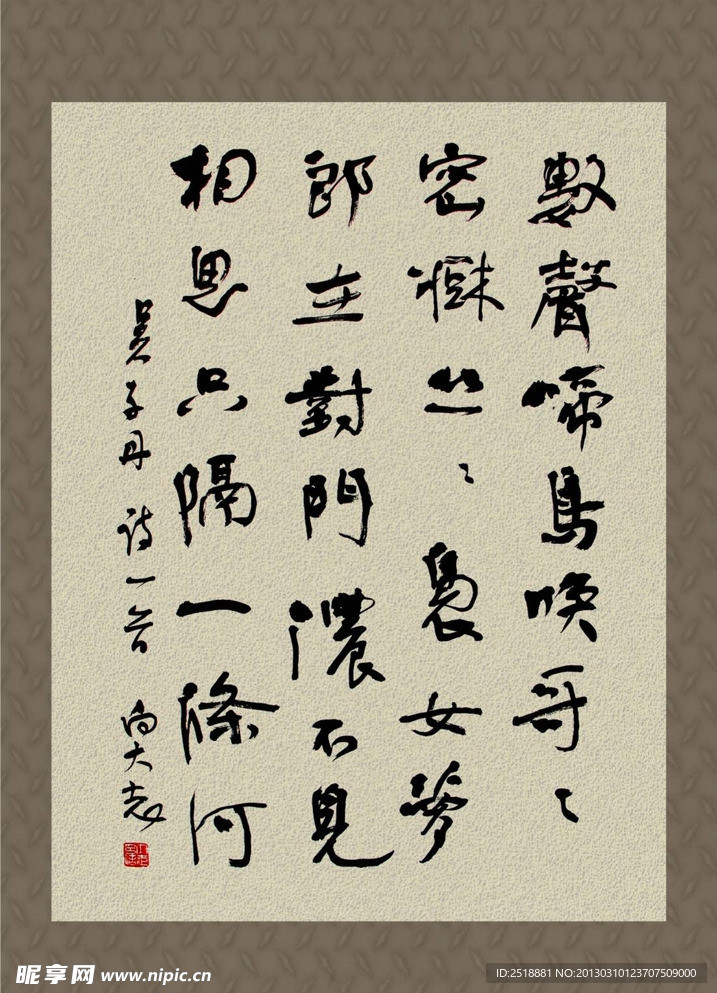 數聲啼鳥喚哥〻
密丝〻裊女萝
郎在對門儂不見
相思只隔一條河
吳子丹 诗一首 向大志
昵享网 www.nipic.cn
ID:2518881 NO:20130310123707509000